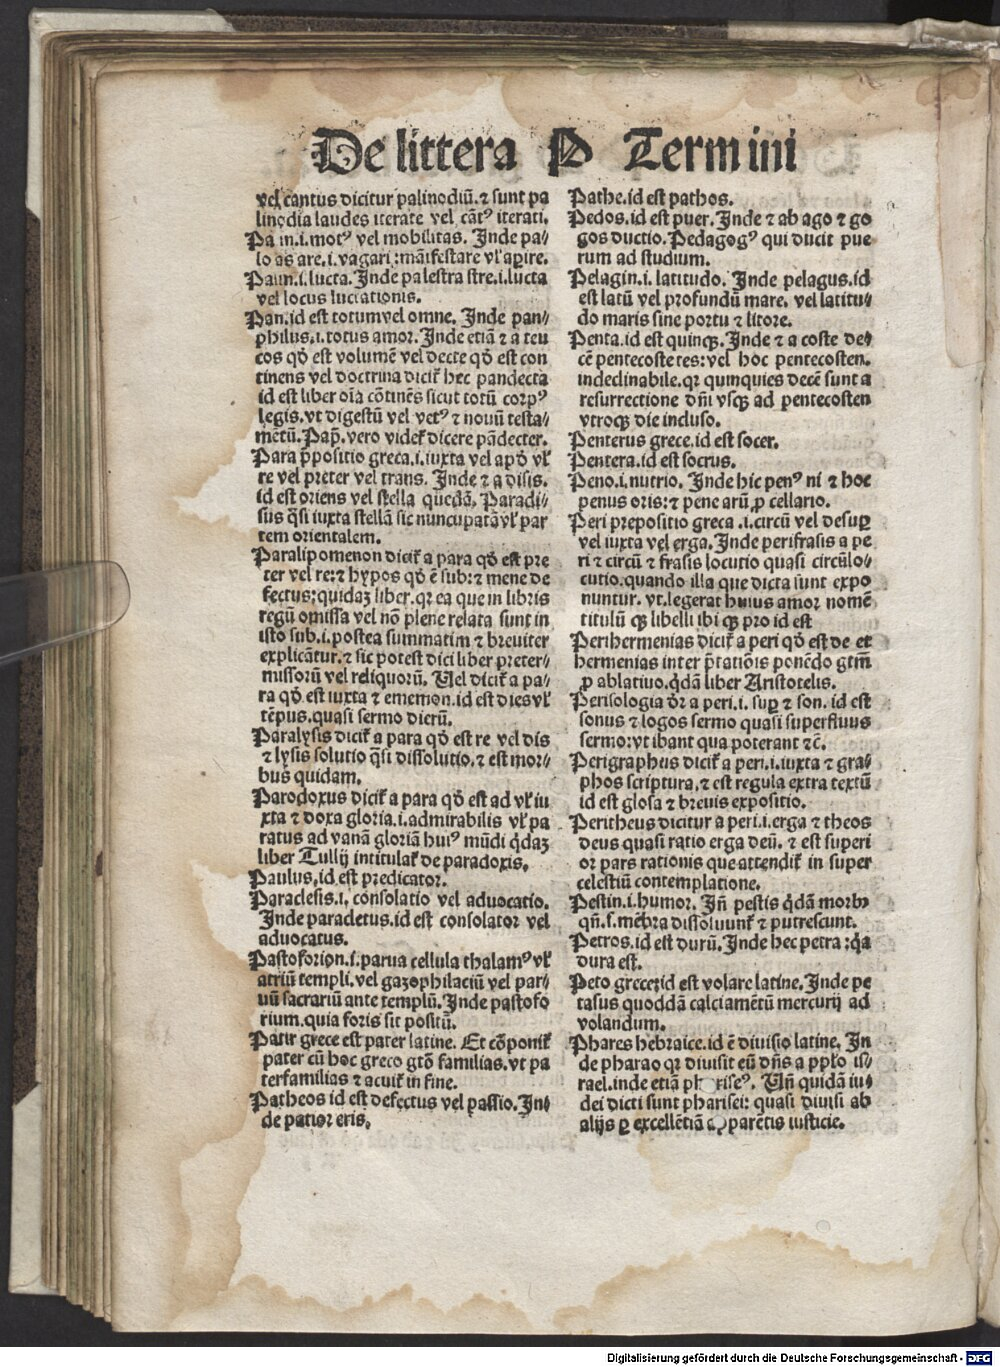 De littera P Termini
vel cantus dicitur palinodiū. ⁊ sunt pa
linodia laudes iterate vel cātꝰ iterati.
Pa in.i.motꝰ vel mobilitas. Inde pa⸗
lo as are.i.vagari:māifestare vl̓ apire.
Paun.i.lucta. Inde palestra stre.i.lucta
vel locus luctationis.
Pan.id est totum vel omne. Inde pan⸗
philus.i.totus amor. Inde etiā ⁊ a teu
cos qd̓ est volumē vel decte qd̓ est con
tinens vel doctrina dicit̄ hec pandecta
id est liber oīa cōtinēs sicut totū corpꝰ
legis. vt digestū vel vetꝰ ⁊ nouū testa⸗
mētū. Pap̄. vero videt̄ dicere pādecter.
Para p̄positio greca.i.iuxta vel apd̓ vl̓
re vel preter vel trans. Inde ⁊ a disis.
id est oriens vel stella quedā. Paradi⸗
sus q̄si iuxta stellā sic nuncupatā vl̓ par
tem orientalem.
Paralipomenon dicit̄ a para qd̓ est pre
ter vel re:⁊ hypos qd̓ ē sub:⁊ mene de
fectus:quidaꝫ liber. qꝛ ea que in libris
regū omissa vel nō plene relata sunt in
isto sub.i.postea summatim ⁊ breuiter
explicātur.⁊ sic potest dici liber preter⸗
missorū vel reliquorū. Uel dicit̄ a pa⸗
ra qd̓ est iuxta ⁊ ememon.id est dies vl̓
tēpus.quasi sermo dierū.
Paralysis dicit̄ a para qd̓ est re vel dis
⁊ lysis solutio q̄si dissolutio.⁊ est mor⸗
bus quidam.
Parodoxus dicit̄ a para qd̓ est ad vl̓ iu
xta ⁊ doxa gloria.i.admirabilis vl̓ pa
ratus ad vanā gloriā huiꝰ mūdi q̄daꝫ
liber Tullij intitulat̄ de paradoxis.
Paulus.id est predicator.
Paraclesis.i. consolatio vel aduocatio.
Inde paracletus.id est consolator vel
aduocatus.
Pastoforion.i.parua cellula thalamꝰ vl̓
atriū templi.vel gazophilaciū vel par⸗
uū sacrariū ante templū. Inde pastofo
rium.quia foris sit positū.
Patir grece est pater latine. Et cōponit̄
pater cū hoc greco gtō familias.vt pa
terfamilias ⁊ acuit̄ in fine.
Patheos id est defectus vel passio. In⸗
de patior eris.
Pathe.id est pathos.
Pedos.id est puer. Inde ⁊ ab ago ⁊ go
gos ductio. Pedagogꝰ qui ducit pue
rum ad studium.
Pelagin.i. latitudo. Inde pelagus.id
est latū vel profundū mare. vel latitu⸗
do maris sine portu ⁊ litore.
Penta.id est quinqꝫ. Inde ⁊ a coste de⸗
cē pentecoste tes: vel hoc pentecosten.
indeclinabile.qꝛ quinquies decē sunt a
resurrectione dn̄i vsqꝫ ad pentecosten
vtroqꝫ die incluso.
Penterus grece.id est socer.
Pentera.id est socrus.
Peno.i.nutrio. Inde hic penꝰ ni ⁊ hoc
penus oris:⁊ pene arū ꝓ cellario.
Peri prepositio greca .i.circū vel desuꝑ
vel iuxta vel erga. Inde perifrasis a pe
ri ⁊ circū ⁊ frasis locutio quasi circūlo⸗
cutio.quando illa que dicta sunt expo
nuntur. vt.legerat huius amor nomē
titulū qꝫ libelli ibi qꝫ pro id est
Perihermenias dicit̄ a peri qd̓ est de et
hermenias inter p̄tatiōis ponēdo gtm̄
ꝓ ablatiuo.q̄dā liber Aristotelis.
Perisologia dr̄ a peri.i. suꝑ ⁊ son. id est
sonus ⁊ logos sermo quasi superfluus
sermo:vt ibant qua poterant ⁊c̄.
Perigraphus dicit̄ a peri.i.iuxta ⁊ gra⸗
phos scriptura.⁊ est regula extra textū
id est glosa ⁊ breuis expositio.
Peritheus dicitur a peri.i.erga ⁊ theos
deus quasi ratio erga deū. ⁊ est superi
or pars rationis que attendit̄ in super
celestiū contemplatione.
Pestin.i.humor. Iñ pestis q̄dā morbꝰ
qñ.s.mēbra dissoluunt̄ ⁊ putrescunt.
Petros.id est durū. Inde hec petra :q̄a
dura est.
Peto grece:id est volare latine. Inde pe
tasus quoddā calciamētū mercurij ad
volandum.
Phares hebraice.id ē diuisio latine. In
de pharao qꝛ diuisit eū dn̄s a pplo is⸗
rael.inde etiā Uñ quidā iu⸗
dei dicti sunt pharisei: quasi diuisi ab
alijs ꝑ excellētiā iusticie.
Digitalisierung gefördert durch die Deutsche Forschungsgemeinschaft - DFG